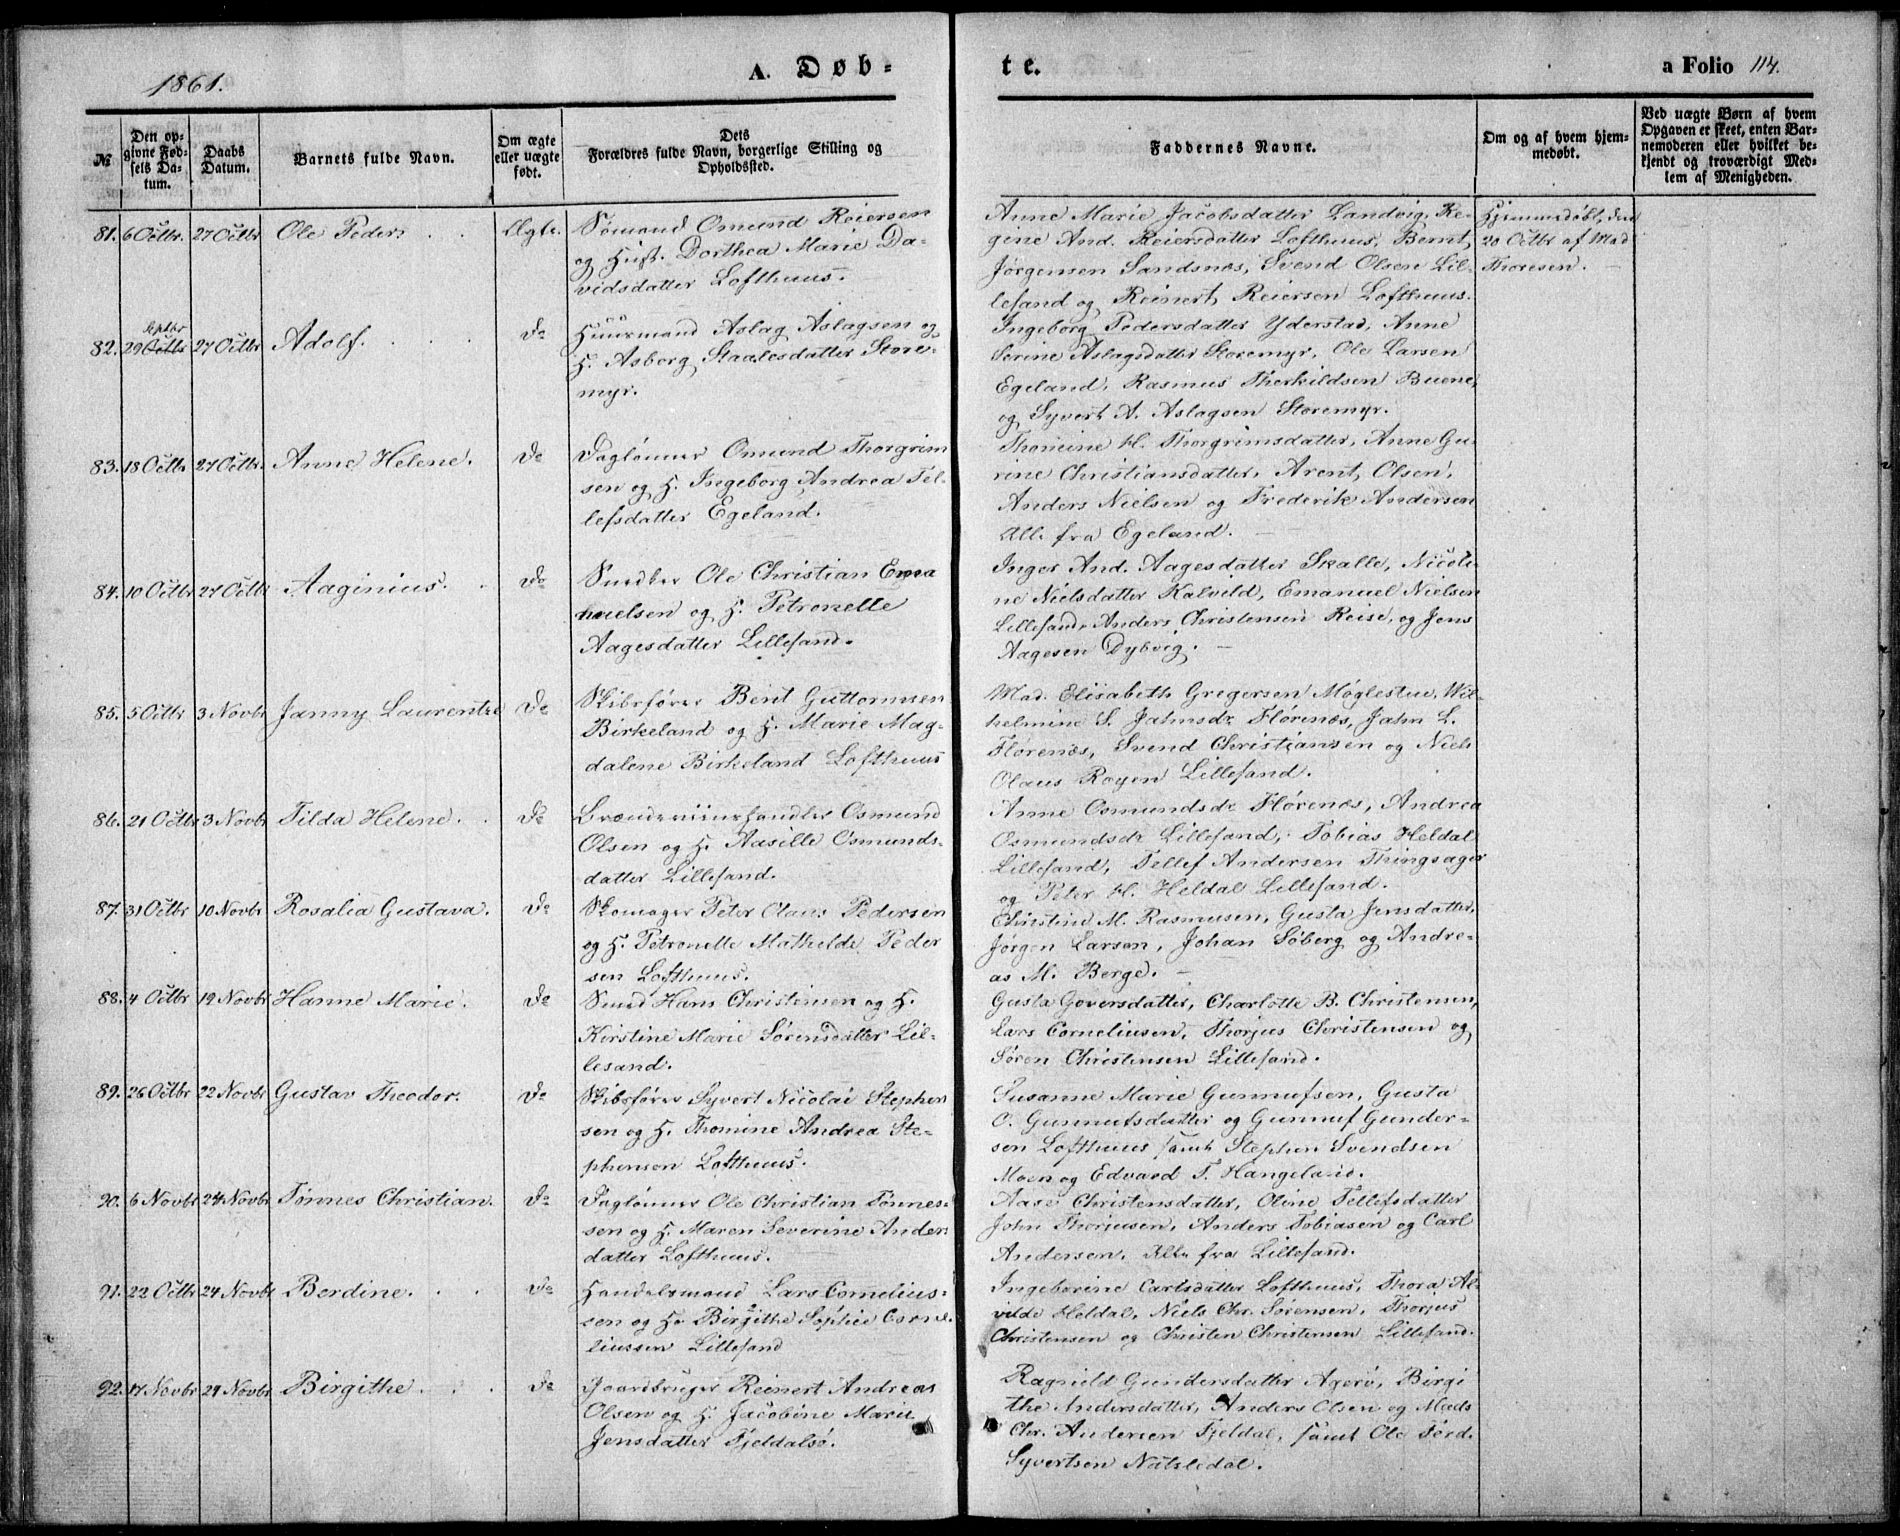 1861.
A. Døb-
te.
a Folio 114.
№
Den op-
givne Fød-
sels Da-
tum.
Daabs
Datum.
Barnets fulde Navn.
Om ægte
eller uægte
født.
Dets
Forældres fulde Navn, borgerlige Stilling og
Opholdssted.
Faddernes Navne.
Om og af hvem hjem-
medøbt.
Ved uægte Børn af hvem
Opgaven er skeet, enten Bar-
nemoderen eller hvilket be-
kjendt og troværdigt Med-
lem af Menigheden.
81. 6 Octbr. 27 Octbr Ole Peder. Ægte.
Sømand Omund Reiersen
og Hust. Dorthea Marie Da-
vidsdatter Lofthuus.
Anne Marie Jacobsdatter Landvig, Re-
gine And. Reiersdatter Lofthuus, Bernt
Jørgensen Sandsnæs, Svend Olsen Lil-
lesand og Reinert Reiersen Lofthuus.
Hjemmedøbt, den
20 Octbr af Mad.
Thoresen.
82. 29 Septbr 27 Octbr Adolf. Do
Huusmand Aslag Aslagsen og
H. Asborg Staalesdatter Store-
myr.
Ingeborg Pedersdatter Yderstad, Anne
Serine Aslagsdatter Storemyr, Ole Larsen
Egeland, Rasmus Therkildsen Buene,
og Syvert A. Aslagsen Storemyr.
83. 18 Octbr 27 Octbr. Anne Helene. Do
Daglønner Omund Thorgrim
sen og H. Ingeborg Andrea Tel-
lefsdatter Egeland.
Thomine H. Thorgrimsdatter, Anne Gu-
rine Christiansdatter, Arent Olsen,
Anders Nielsen og Frederik Andersen
Alle fra Egeland.
84. 10 Octbr 27 Octbr Aaginius. Do
Snedker Ole Christian Ema
nuelsen og H. Petronelle
Aagesdatter Lillesand.
Inger And. Aagesdatter Skalle, Nicoli-
ne Nielsdatter Kalvild, Emanuel Nielsen
Lillesand, Anders Christensen Reise, og Jens
Aagesen Dybvig.
85. 5 Octbr 3 Novbr Janny Laurentze Do
Skibsfører Bent Guttormsen
Birkeland og H. Marie Mag-
dalene Birkeland Lofthuus
Mad. Elisabeth Gregersen Møglestue, Wil-
helmine S. Jahnsdr Flørenæs, Jahn L.
Flørenæs, Svend Christiansen og Niels
Olaus Røyen Lillesand.
86. 21 Octbr 3 Novbr Tilda Helene. Do
Brændeviinshandler Osmund
Olsen og H. Aasille Osmunds-
datter Lillesand.
Anne Osmundsdr Flørenæs, Andrea
Osmundsdr Lillesand, Tobias Heldal
Lillesand, Tellef Andersen Thingsager
og Peter H. Heldal Lillesand.
87. 31 Octbr 10 Novbr. Rosalia Gustava. Do
Skomager Peter Olaus Pedersen
og H. Petronelle Mathilde Peder
sen Lofthuus.
Christine M. Rasmusen, Gusta Jensdatter,
Jørgen Larsen, Johan Søberg og Andre-
as M. Berge.
88. 4 Octbr 19 Novbr Hanne Marie. Do
Smed Hans Christensen og H.
Kirstine Marie Sørensdatter Lil-
lesand.
Gusta Goversdatter, Charlotte B. Christensen,
Lars Corneliusen, Thorjus Christensen og
Søren Christensen Lillesand.
89. 26 Octbr 22 Novbr Gustav Theodor. Do
Skibsfører Syvert Nicolai Stephen
sen og H. Thomine Andrea Ste-
phensen Lofthuus.
Susanne Marie Gunnufsen, Gusta
O. Gunnufsdatter og Gunnuf Gunder-
sen Lofthuus samt Stephen Svendsen
Moen og Edvard T. Hangeland.
90. 6 Novbr 24 Novbr Tønnes Christian. Do
Daglønner Ole Christian Tønnes-
sen og H. Maren Severine Anders
datter Lofthuus.
Aase Christensdatter, Oline Tellefsdatter
John Thorjusen, Anders Tobiasen og Carl
Andersen. Alle fra Lillesand.
91. 22 Octbr 24 Novbr Berdine. Do
Handelsmand Lars Cornelius-
sen og H. Birgithe Sophie Corne
liussen Lillesand
Ingeborine Carlsdatter Lofthuus, Thora Al-
vilde Heldal, Niels Chr. Sørensen, Thorjus
Christensen og Christen Christensen Lillesand.
92. 17 Novbr 29 Novbr Birgithe. Do
Gaardbruger Reinert Andreas
Olsen og H. Jacobine Marie
Jensdatter Fjeldalsø.
Ragnild Gundersdatter Agerø, Birgi
the Andersdatter, Anders Olsen og Mads
Chr. Andersen Fjeldal, samt Ole Ferd.
Syvertsen